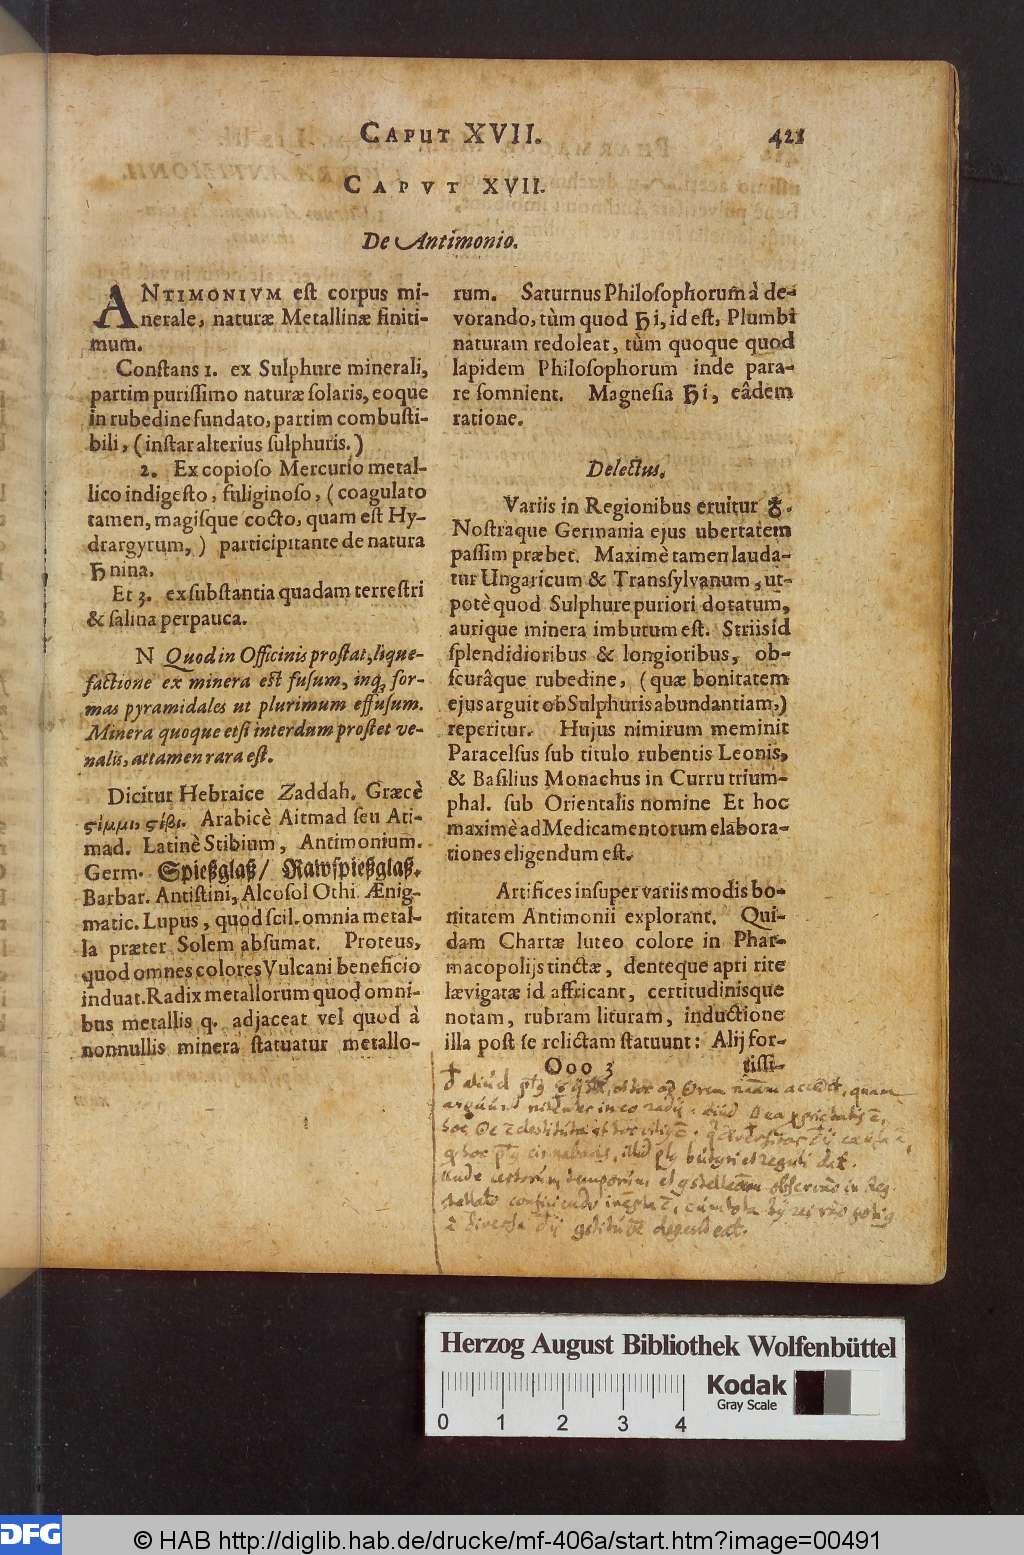 CAPUT XVII. 421
CAPVT XVII.
De Antimonio.
ANTIMONIVM eſt corpus mi-
nerale, naturæ Metallinæ finiti-
mum.
Conſtans 1. ex Sulphure minerali,
partim puriſſimo naturæ ſolaris, eoque
in rubedine fundato, partim combuſti-
bili, (inſtar alterius ſulphuris.)
2. Ex copioſo Mercurio metal-
lico indigeſto, fuliginoſo, (coagulato
tamen, magiſque cocto, quam eſt Hy-
drargyrum,) participitante de natura
♄nina.
Et 3. ex ſubſtantia quadam terreſtri
& ſalina perpauca.
N Quod in Officinis proſtat, lique-
factione ex minera eſt fuſum, inq; for-
mas pyramidales ut plurimum effuſum.
Minera quoque etſi interdum proſtet ve-
nalis, attamen rara eſt.
Dicitur Hebraice Zaddah. Græcè
ϛίμμι, ϛίβι. Arabicè Aitmad ſeu Ati-
mad. Latinè Stibium, Antimonium.
Germ. Spießglaß/ Rawſpießglaß.
Barbar. Antiſtini, Alcoſol Othi. Ænig-
matic. Lupus, quod ſcil. omnia metal-
la præter Solem abſumat. Proteus,
quod omnes colores Vulcani beneficio
induat. Radix metallorum quod omni-
bus metallis q. adjaceat vel quod à
nonnullis minera ſtatuatur metallo-
rum. Saturnus Philoſophorum à de-
vorando, tùm quod ♄i, id eſt, Plumbi
naturam redoleat, tùm quoque quod
lapidem Philoſophorum inde para-
re ſomnient. Magneſia ♄i, eâdem
ratione.
Delectus.
Variis in Regionibus eruitur ♁.
Noſtraque Germania ejus ubertatem
paſſim præbet. Maximè tamen lauda-
tur Ungaricum & Transſylvanum, ut-
potè quod Sulphure puriori dotatum,
aurique minera imbutum eſt. Striis id
ſplendidioribus & longioribus, ob-
ſcurâque rubedine, (quæ bonitatem
ejus arguit ob Sulphuris abundantiam,)
reperitur. Hujus nimirum meminit
Paracelſus ſub titulo rubentis Leonis,
& Baſilius Monachus in Curru trium-
phal. ſub Orientalis nomine Et hoc
maximè ad Medicamentorum elabora-
tiones eligendum eſt.
Artifices inſuper variis modis bo-
nitatem Antimonii explorant. Qui-
dam Chartæ luteo colore in Phar-
macopolijs tinctæ, denteque apri rite
lævigatæ id affricant, certitudinisque
notam, rubram lituram, inductione
illa poſt ſe relictam ſtatuunt: Alij for-
Ooo 3 tiſſi-
Herzog August Bibliothek Wolfenbüttel
0 1 2 3 4
Kodak
Gray Scale
DFG
© HAB http://diglib.hab.de/drucke/mf-406a/start.htm?image=00491